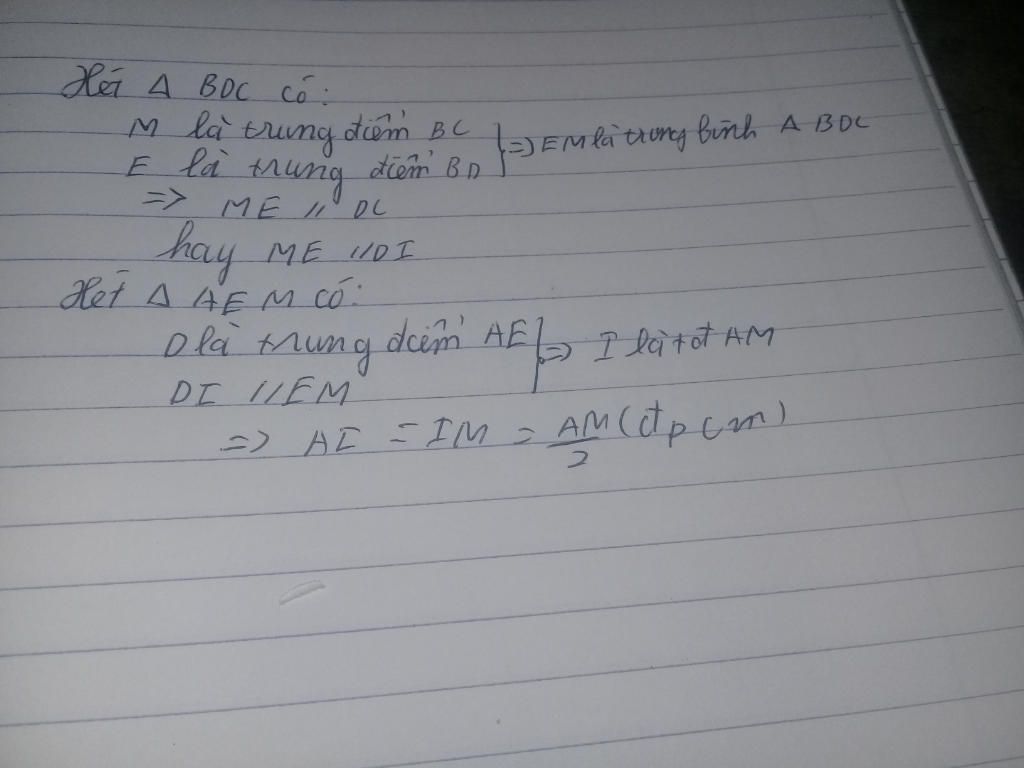 Xét Δ BDC có:
M là trung điểm BC
E là trung điểm BD } => EM là trung bình Δ BDC
=> ME // DC
hay ME // DI
Xét Δ AEM có:
D là trung điểm AE
DI // EM } => I là tđ AM
=> AI = IM = AM/2 (đpcm)